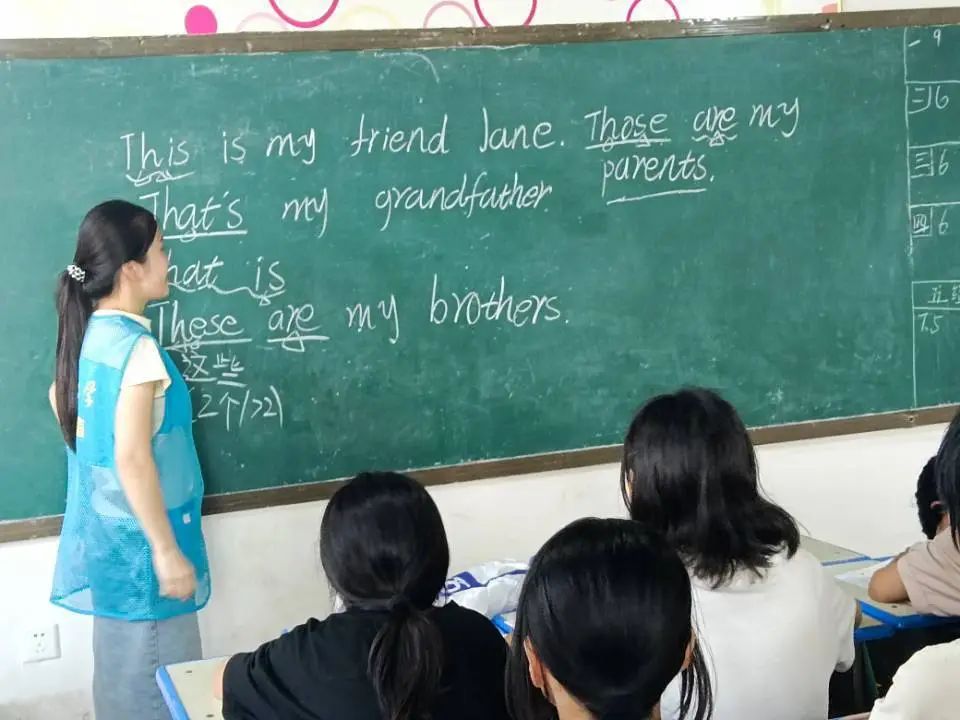 This is my friend Jane. Those are my
parents.
That's my grandfather.
That is
These are my brothers.
这些
(2个/>2)
一 9
三 6
四 6
7.5